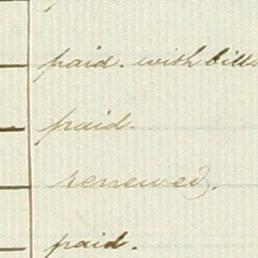 paid. with bills
paid.
renewed.
paid.